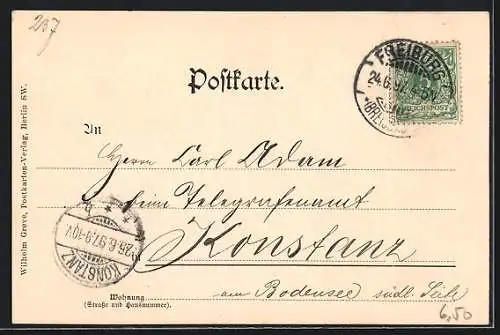 237
FREIBURG
24.6.97. 4-5N.
REICHSPOST
Postkarte.
An
Herrn Carl Adam
beim Telegrafenamt
Konstanz
am Bodensee südl. Seite
KONSTANZ
25.6.97.9-10V.
Wohnung
(Straße und Hausnummer).
Wilhelm Greve, Postkarten-Verlag, Berlin SW.
6,50